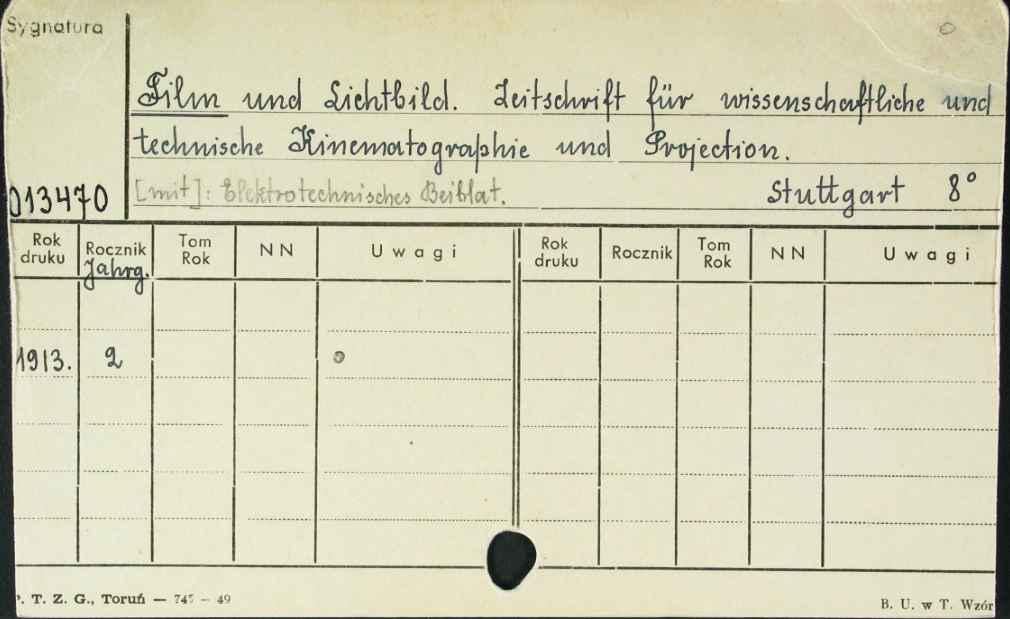 Sygnatura
Film und Lichtbild. Zeitschrift für wissenschaftliche und
technische Kinematographie und Projection.
013470 [mit]: Elektrotechnisches Beiblat. Stuttgart 8°
Rok druku Rocznik Jahrg. Tom Rok NN Uwagi Rok druku Rocznik Tom Rok NN Uwagi
1913. 2
P. T. Z. G., Toruń — 745 — 49 B. U. w T. Wzór